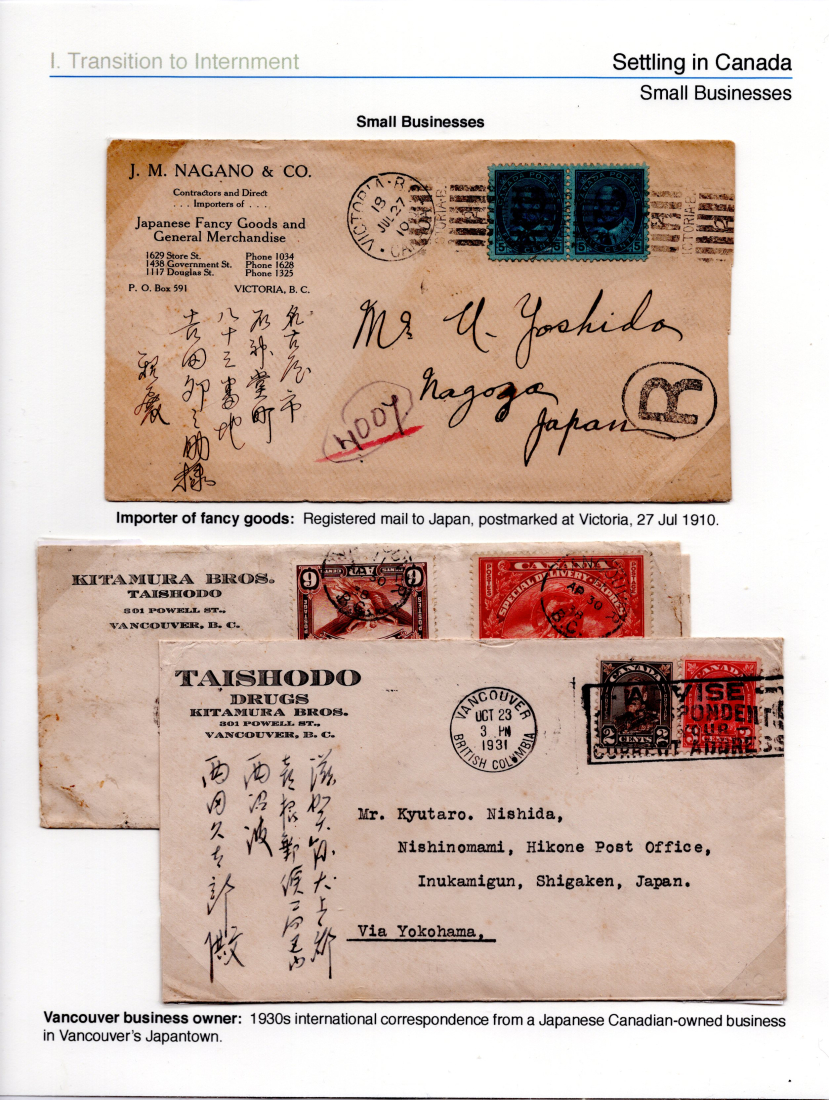 I. Transition to Internment
Settling in Canada
Small Businesses
Small Businesses
J. M. NAGANO & CO.
Contractors and Direct
. . . Importers of . . .
Japanese Fancy Goods and
General Merchandise
1629 Store St. Phone 1034
1438 Government St. Phone 1628
1117 Douglas St. Phone 1325
P. O. Box 591 VICTORIA, B. C.
VICTORIA
18
JUL 27
10
CANADA
5 5 5 5
名古屋市
八十三番地
吉田卯之助様
Mr. U. Yoshida
Nagoya
Japan
R
4007
Importer of fancy goods: Registered mail to Japan, postmarked at Victoria, 27 Jul 1910.
KITAMURA BROS.
TAISHODO
301 POWELL ST.,
VANCOUVER, B. C.
6 6
CANADA
SPECIAL DELIVERY-EXPRESS
AP 30
B.C.
TAISHODO
DRUGS
KITAMURA BROS.
301 POWELL ST.,
VANCOUVER, B. C.
VANCOUVER
OCT 23
3 PM
1931
BRITISH COLUMBIA
CANADA CANADA
2 CENTS
滋賀県犬上郡
西沼波
西田久太郎殿
Mr. Kyutaro. Nishida,
Nishinomami, Hikone Post Office,
Inukamigun, Shigaken, Japan.
Via Yokohama,
Vancouver business owner: 1930s international correspondence from a Japanese Canadian-owned business
in Vancouver's Japantown.